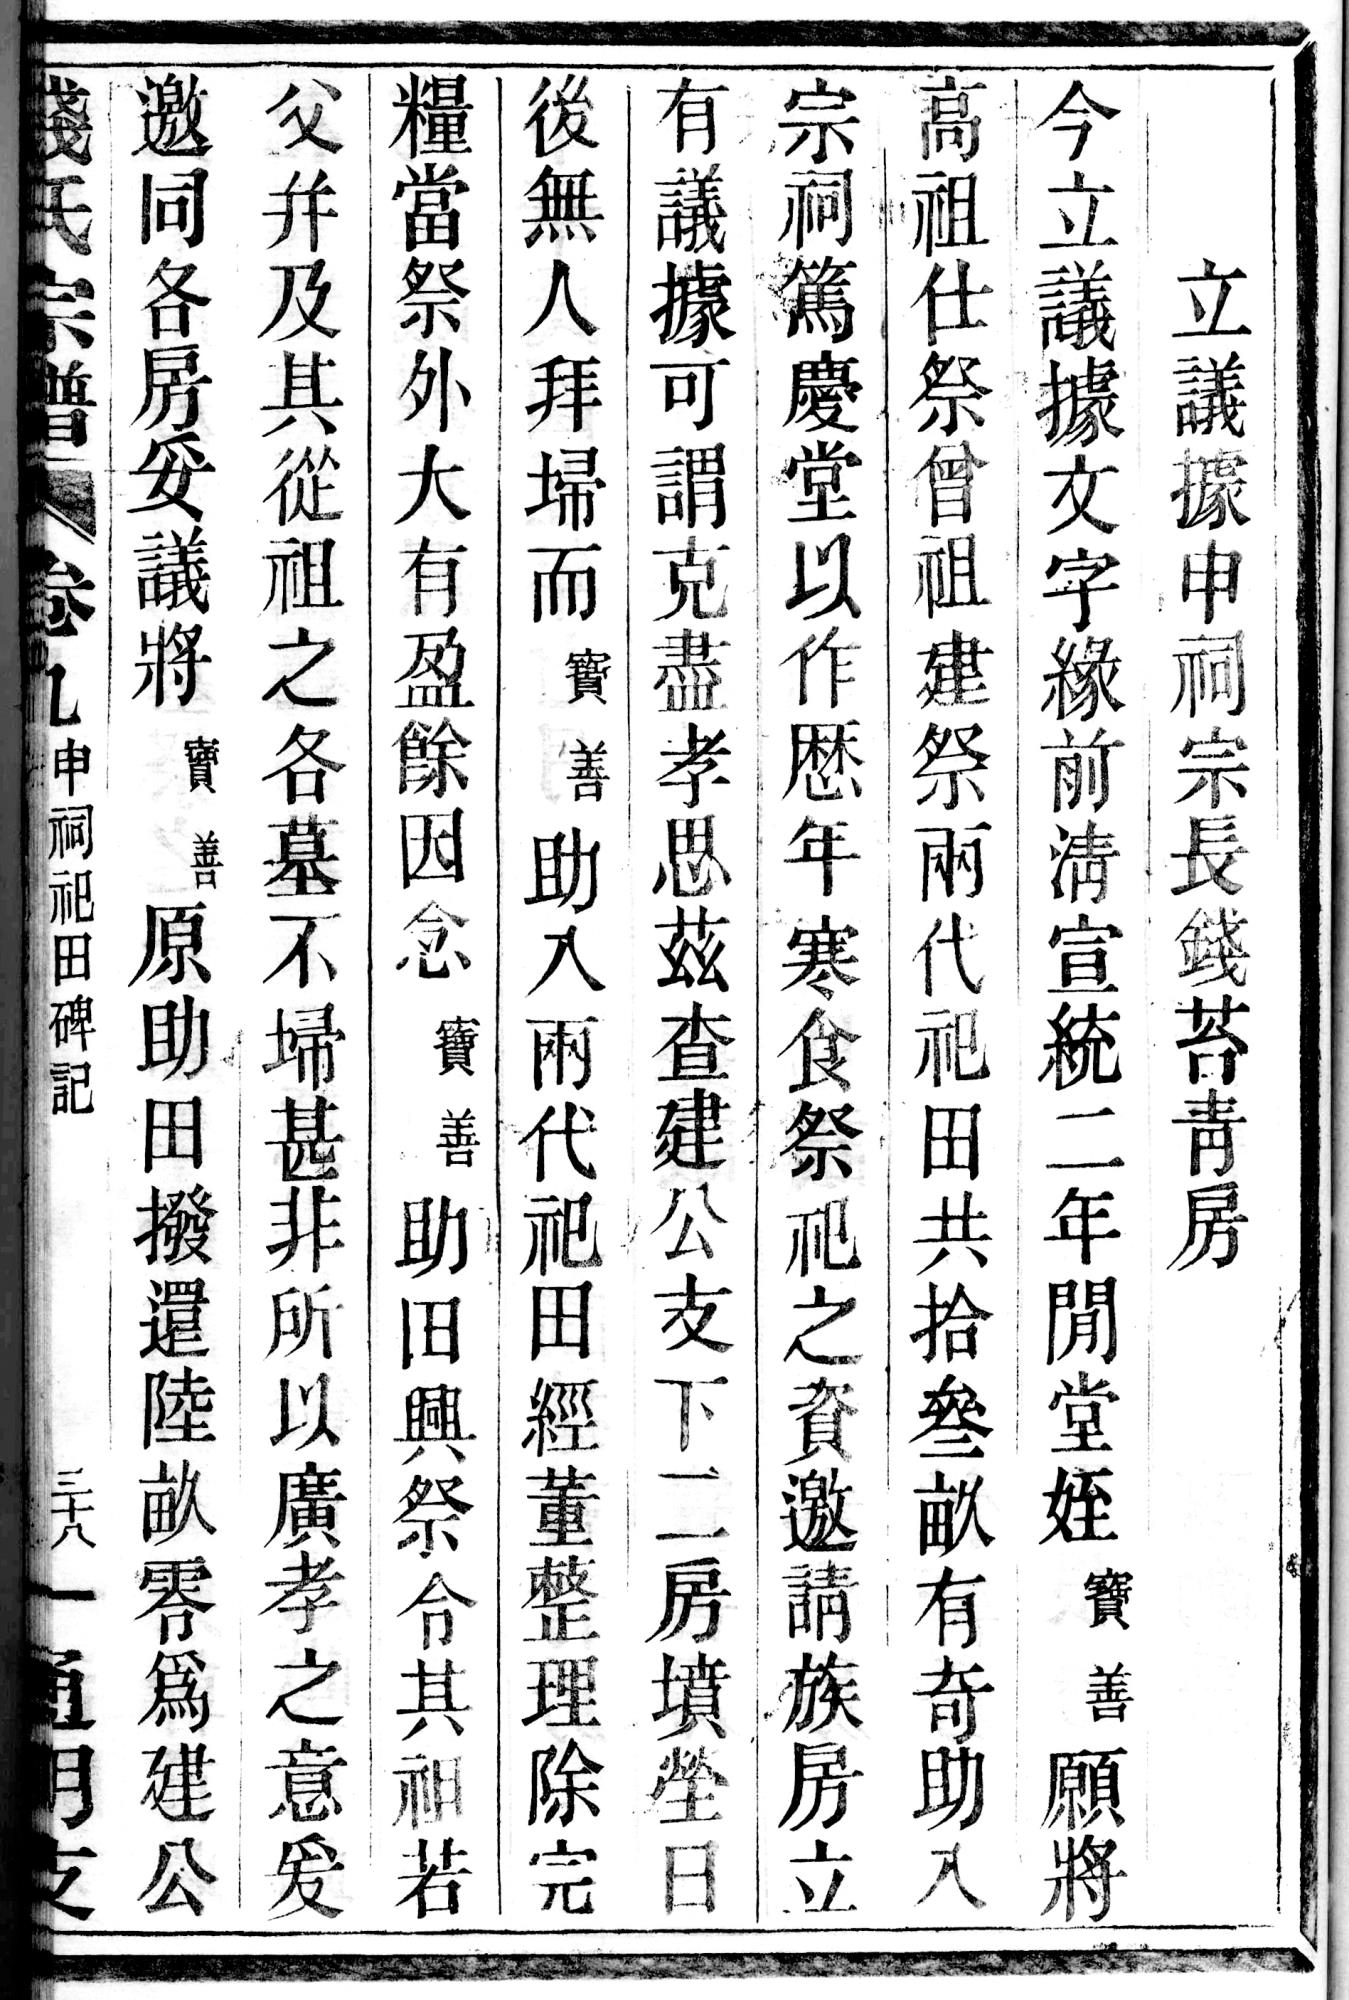 立議據申祠宗長錢苔靑房
今立議據文字緣前淸宣統二年閒堂姪寶善願將
高祖仕祭曾祖建祭兩代祀田共拾叄畝有奇助入
宗祠篤慶堂以作歷年寒食祭祀之資邀請族房立
有議據可謂克盡孝思茲查建公支下二房墳塋日
後無人拜埽而寶善助入兩代祀田經董整理除完
糧當祭外大有盈餘因念寶善助田興祭令其祖若
父幷及其從祖之各墓不埽甚非所以廣孝之意爰
邀同各房妥議將寶善原助田撥還陸畝零爲建公
錢氏宗譜 卷九 申祠祀田碑記 三十八 通明支